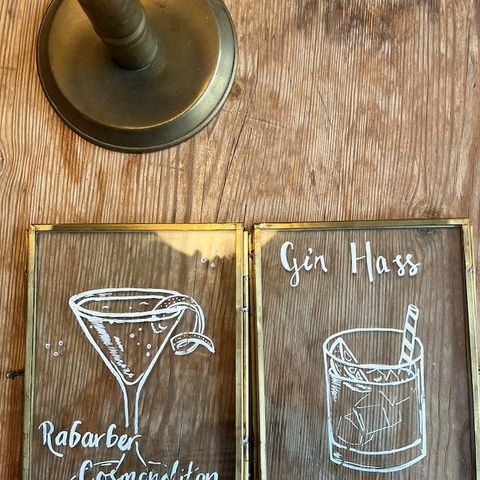 Rabarber
Cosmopolitan
Gin Hass